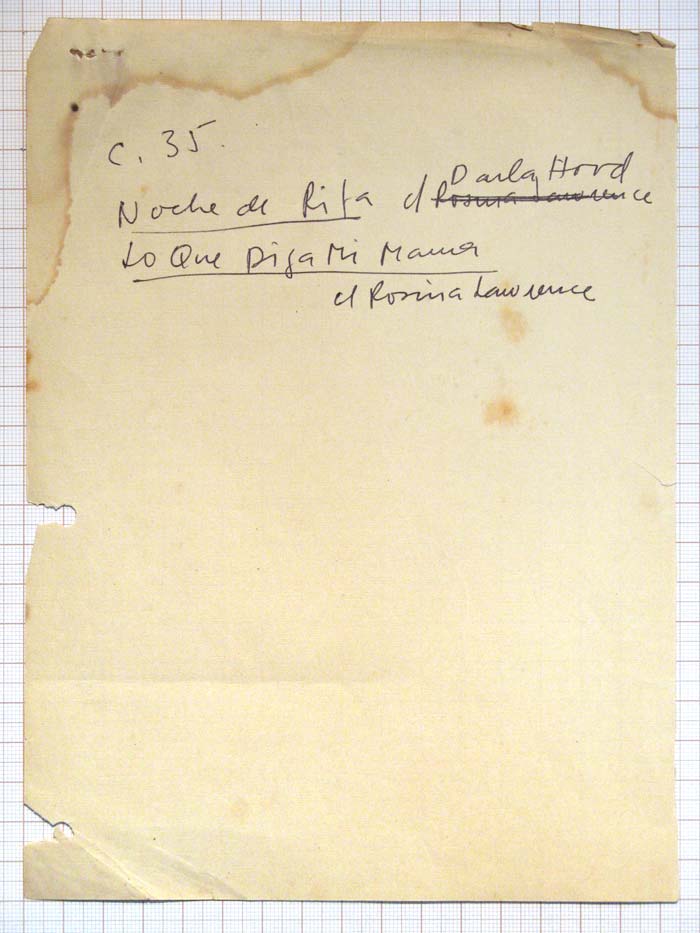 C. 35.
Noche de Rifa c/ Darlay Hord
Rosina Lawrence
Lo Que Diga Mi Mama
c/ Rosina Lawrence